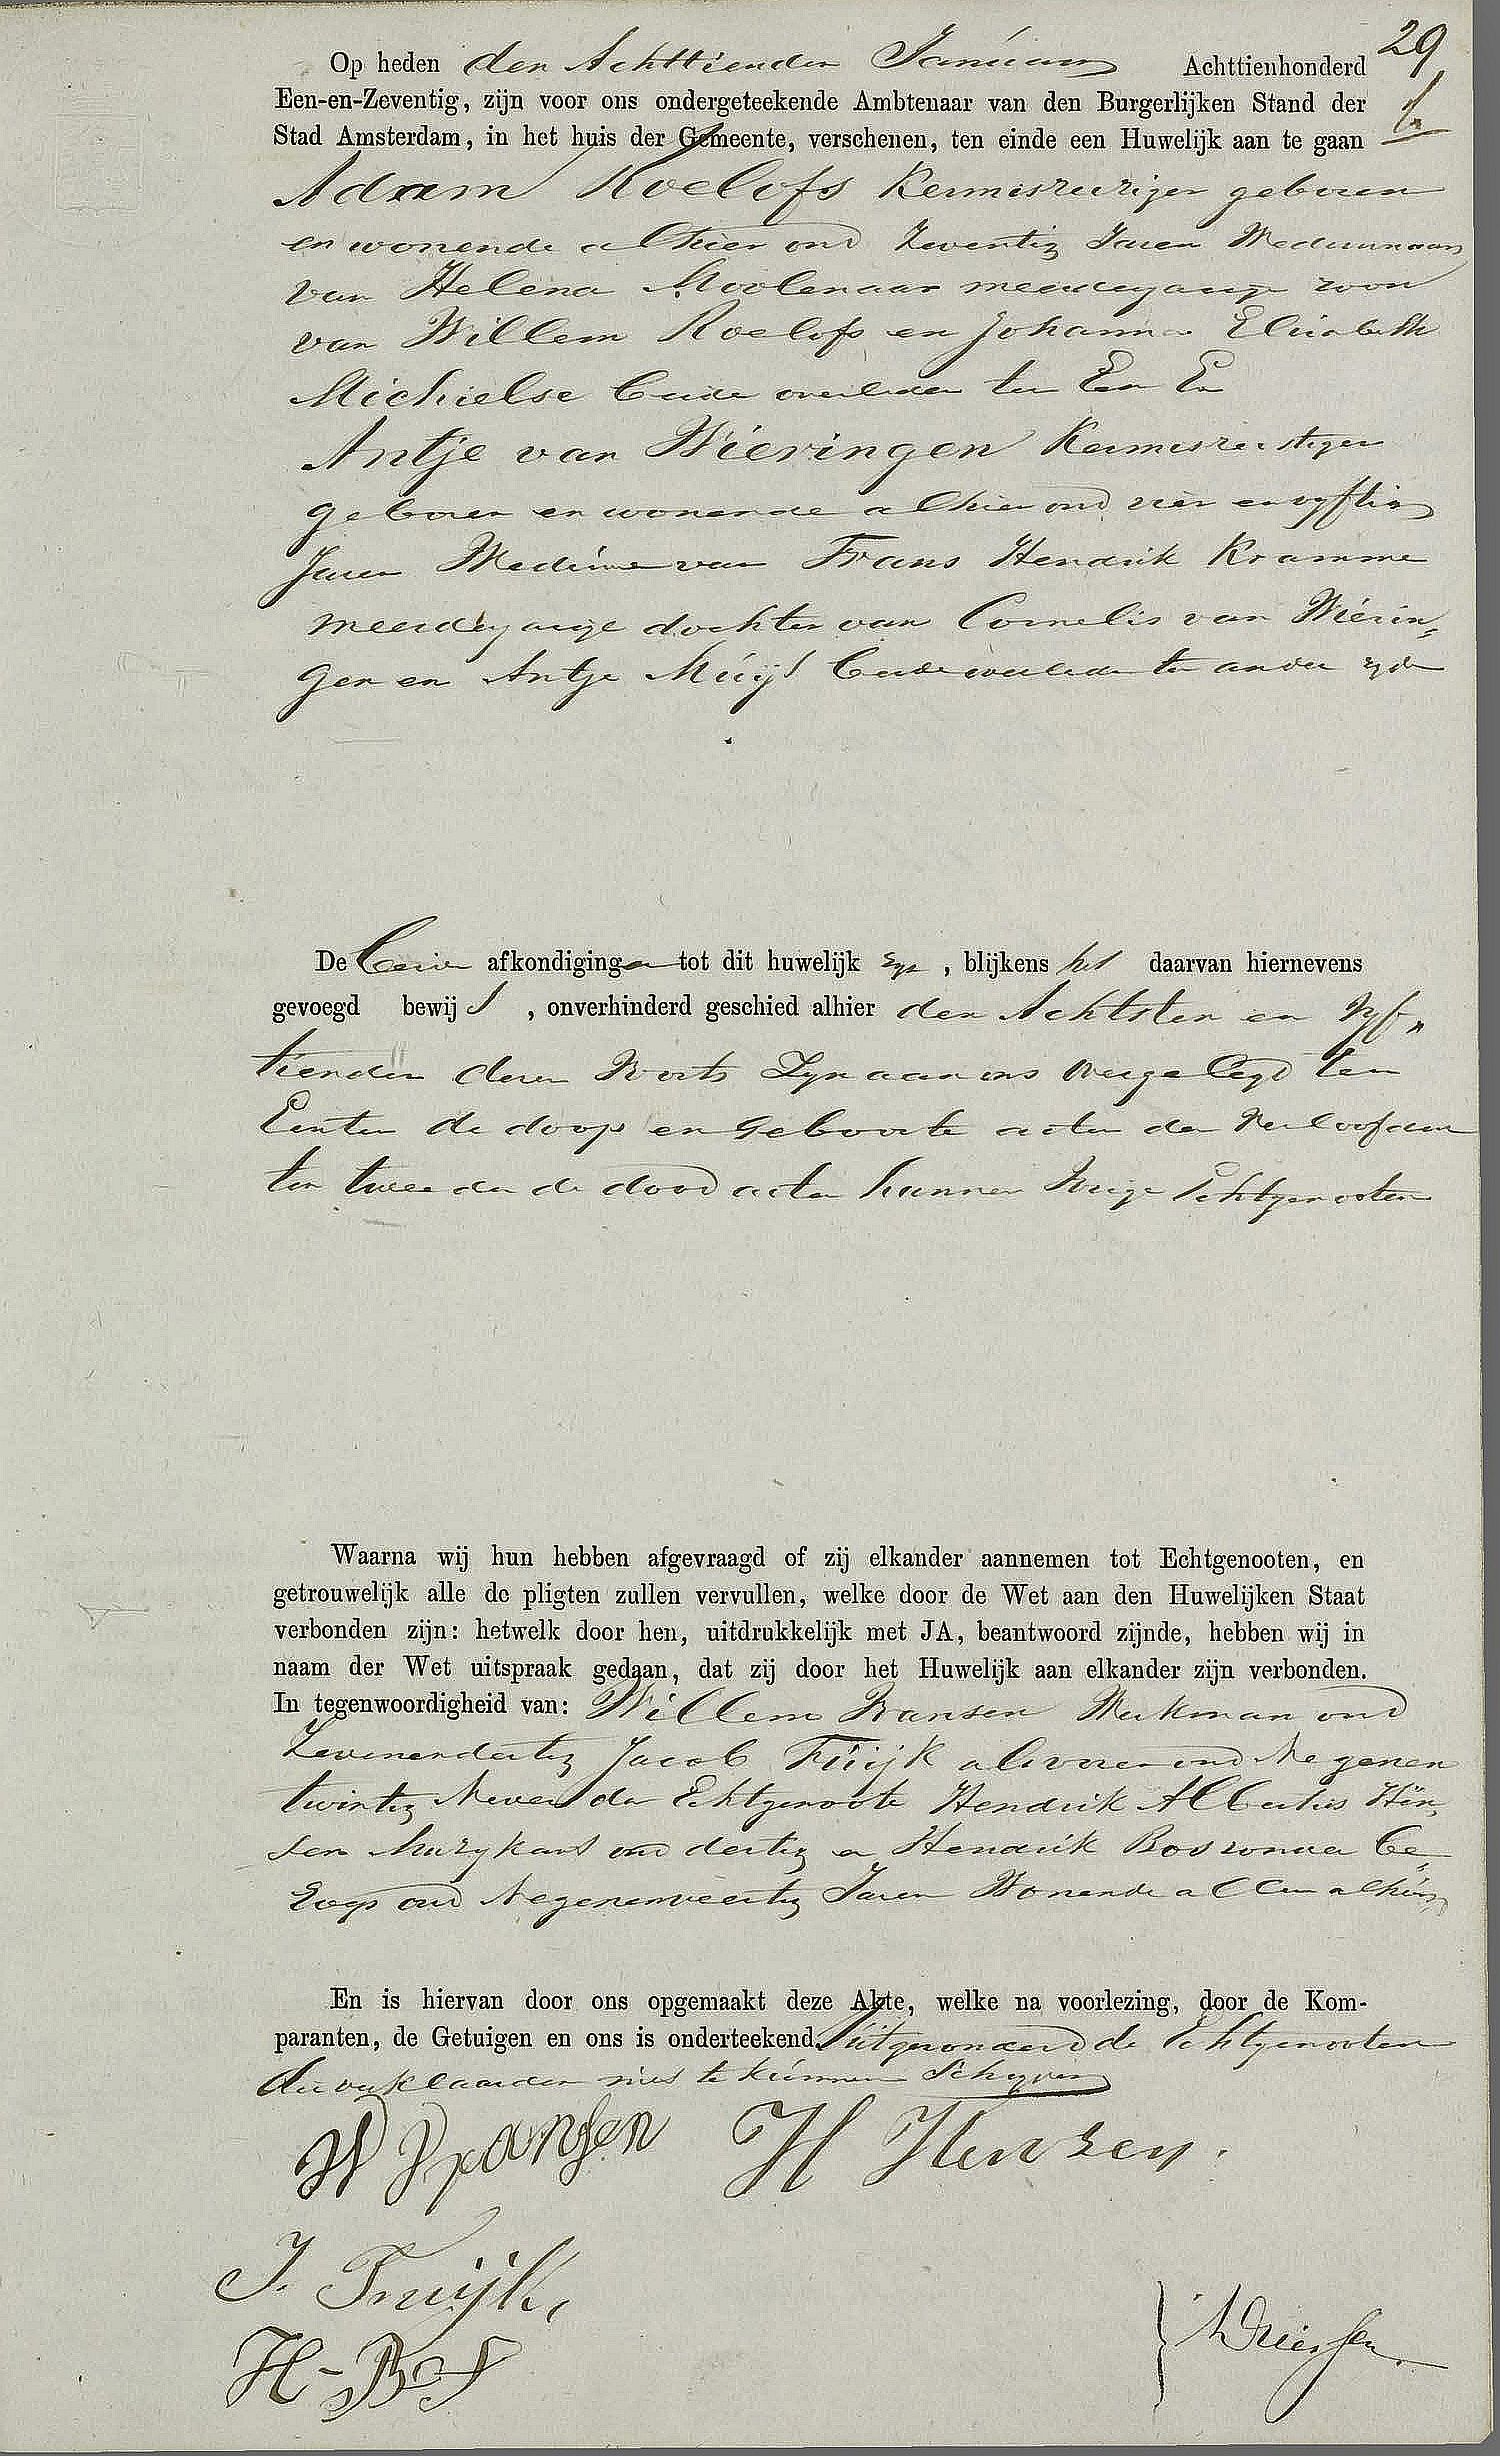 29
Op heden den Achttienden Januari Achttienhonderd
Een-en-Zeventig, zijn voor ons ondergeteekende Ambtenaar van den Burgerlijken Stand der
Stad Amsterdam, in het huis der Gemeente, verschenen, ten einde een Huwelijk aan te gaan
Adam Roelofs Kermisreiziger geboren
en wonende alhier oud Zeventig Jaren Weduwnaar
van Helena Moolenaar meerderjarige zoon
van Willem Roelofs en Johanna Elisabeth
Michielse beide overleden ter Eene En
Antje van Wieringen Kermisreizigster
geboren en wonende alhier oud vier en vyftig
Jaren Weduwe van Frans Hendrik Kramme
meerderjarige dochter van Cornelis van Wierin-
gen en Antje Muijs beide overleden ter andere zyde
De beide afkondigingen tot dit huwelijk zyn, blijkens het daarvan hiernevens
gevoegd bewijs, onverhinderd geschied alhier den Achtsten en Vyf-
tienden dezer Voorts Zyn aan ons overgelegd ten
Eersten de doop en geboorte acten der Verloofden
ten tweeden de dood acten hunner Vorige Echtgenooten
Waarna wij hun hebben afgevraagd of zij elkander aannemen tot Echtgenooten, en
getrouwelijk alle de pligten zullen vervullen, welke door de Wet aan den Huwelijken Staat
verbonden zijn: hetwelk door hen, uitdrukkelijk met JA, beantwoord zijnde, hebben wij in
naam der Wet uitspraak gedaan, dat zij door het Huwelijk aan elkander zijn verbonden.
In tegenwoordigheid van: Willem Bransen Werkman oud
Zevenendertig Jacob Fruijk oud Negenen
twintig Neven der Echtgenoote Hendrik Albertus Hen-
sen Muzykant oud dertig en Hendrik Bos zonder be-
roep oud Negenenveertig Jaren Wonende allen alhier
En is hiervan door ons opgemaakt deze Akte, welke na voorlezing, door de Kom-
paranten, de Getuigen en ons is onderteekend. Uitgezonderd de Echtgenooten
die verklaarden niet te kunnen Schryven
W Bransen H Henzen.
J. Fruijk,
H-Bos